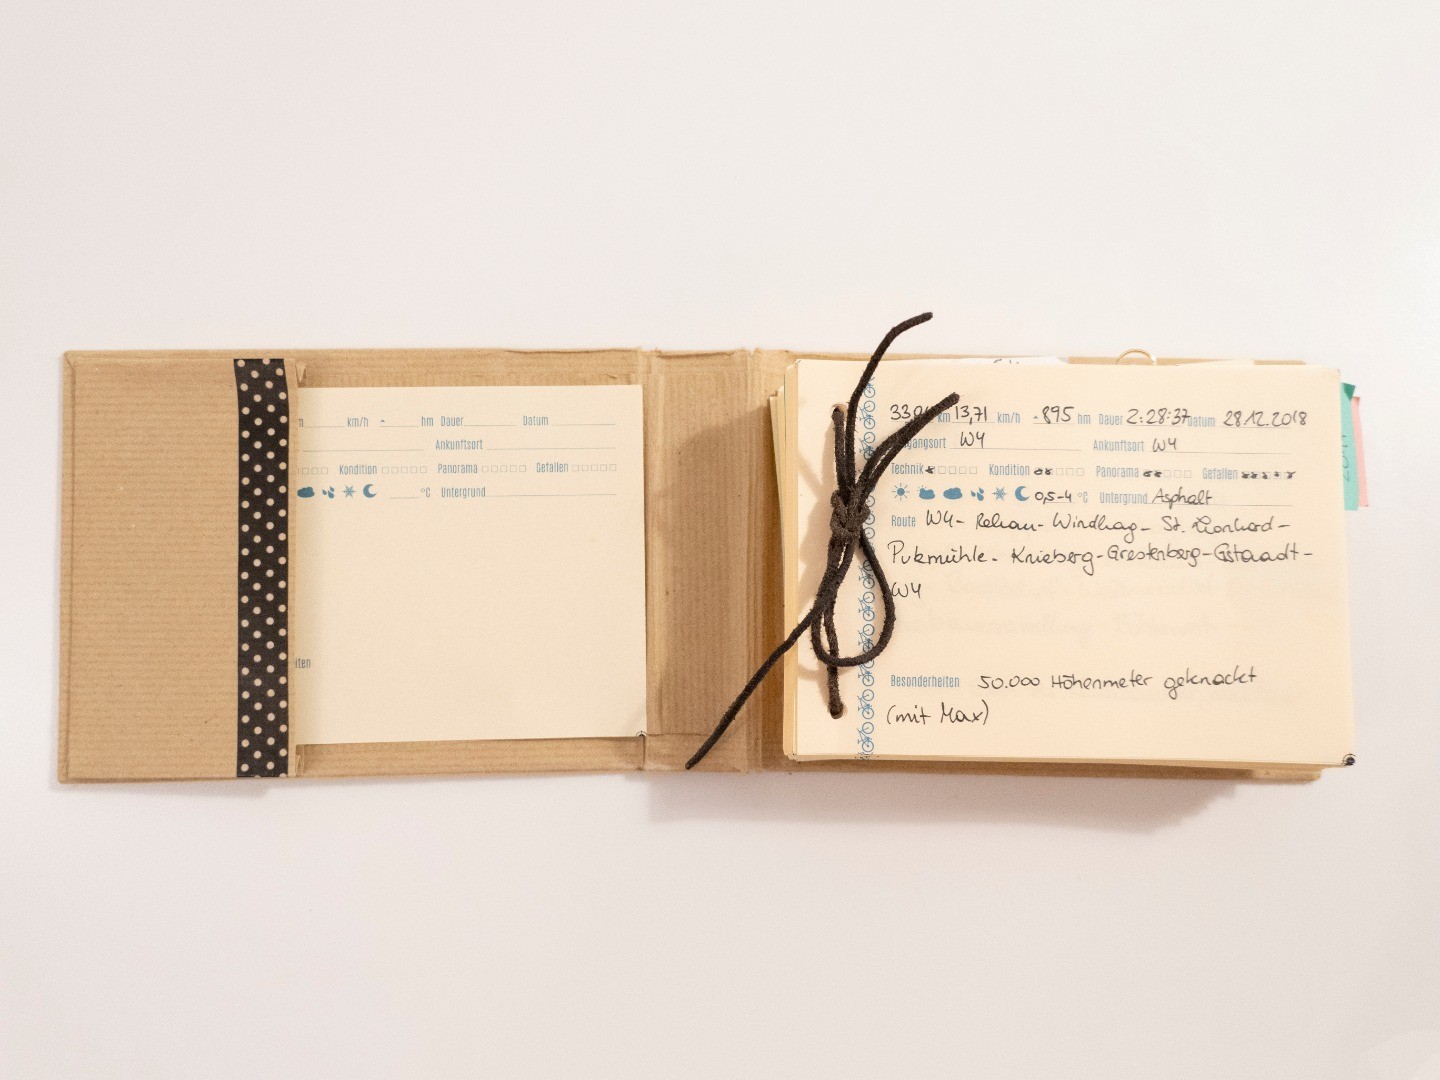 km/h - hm Dauer Datum
Ankunftsort
Kondition Panorama Gefallen
°C Untergrund
km 13,71 km/h -895 hm Dauer 2:28:37 Datum 28.12.2018
W4 Ankunftsort W4
Technik Kondition Panorama Gefallen
0,5-4 °C Untergrund Asphalt
Route W4- Rehau- Windhag- St. Leonhard-
Pukmühle- Knieberg-Grestenberg-Gstaadt-
W4
Besonderheiten 50.000 Höhenmeter geknackt
(mit Max)